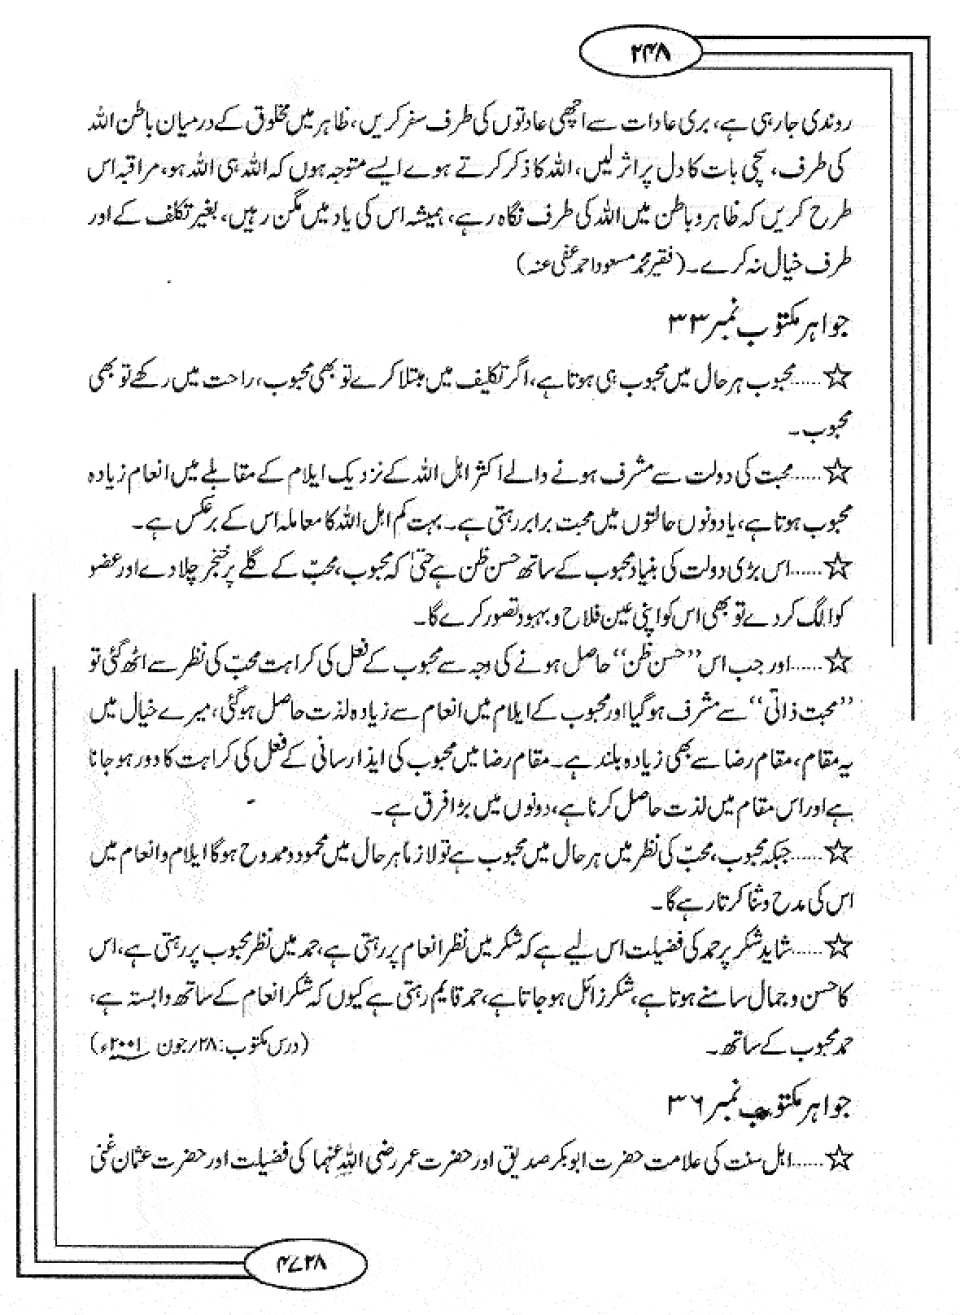 ۲۴۸
روندی جارہی ہے، بری عادات سے اچھی عادتوں کی طرف سفر کریں، ظاہر میں مخلوق کے درمیان باطن اللہ
کی طرف، سچی بات کا دل پر اثر لیں، اللہ کا ذکر کرتے ہوے ایسے متوجہ ہوں کہ اللہ ہی اللہ ہو، مراقبہ اس
طرح کریں کہ ظاہر و باطن میں اللہ کی طرف نگاہ رہے، ہمیشہ اس کی یاد میں مگن رہیں، بغیر تکلف کے اور
طرف خیال نہ کرے۔ (فقیر محمد مسعود احمد عفی عنہ)
جواہر مکتوب نمبر ۳۳
☆......محبوب ہر حال میں محبوب ہی ہوتا ہے، اگر تکلیف میں مبتلا کرے تو بھی محبوب، راحت میں رکھے تو بھی
محبوب۔
☆......محبت کی دولت سے مشرف ہونے والے اکثر اہل اللہ کے نزدیک ایلام کے مقابلے میں انعام زیادہ
محبوب ہوتا ہے، یا دونوں حالتوں میں محبت برابر رہتی ہے۔ بہت کم اہل اللہ کا معاملہ اس کے برعکس ہے۔
☆......اس بڑی دولت کی بنیاد محبوب کے ساتھ حسن ظن ہے حتیٰ کہ محبوب، محبّ کے گلے پر خنجر چلا دے اور عضو
کو الگ کر دے تو بھی اس کو اپنی عین فلاح و بہبود تصور کرے گا۔
☆......اور جب اس ”حسن ظن“ حاصل ہونے کی وجہ سے محبوب کے فعل کی کراہت محبّ کی نظر سے اٹھ گئی تو
”محبت ذاتی“ سے مشرف ہوگیا اور محبوب کے ایلام میں انعام سے زیادہ لذت حاصل ہوگئی، میرے خیال میں
یہ مقام، مقام رضا سے بھی زیادہ بلند ہے۔ مقام رضا میں محبوب کی ایذا رسانی کے فعل کی کراہت کا دور ہو جانا
ہے اور اس مقام میں لذت حاصل کرنا ہے، دونوں میں بڑا فرق ہے۔
☆......جبکہ محبوب، محبّ کی نظر میں ہر حال میں محبوب ہے تو لازماً ہر حال میں محمود و ممدوح ہوگا ایلام و انعام میں
اس کی مدح و ثنا کرتا رہے گا۔
☆......شاید شکر پر حمد کی فضیلت اس لیے ہے کہ شکر میں نظر انعام پر رہتی ہے، حمد میں نظر محبوب پر رہتی ہے، اس
کا حسن و جمال سامنے ہوتا ہے، شکر زائل ہو جاتا ہے، حمد قایم رہتی ہے کیوں کہ شکر انعام کے ساتھ وابستہ ہے،
حمد محبوب کے ساتھ۔ (درس مکتوب: ۲۸/جون ۲۰۰۱ء)
جواہر مکتوب نمبر ۳۶
☆......اہل سنت کی علامت حضرت ابوبکر صدیق اور حضرت عمر رضی اللہ عنہما کی فضیلت اور حضرت عثمان غنی
۴۷۲۸